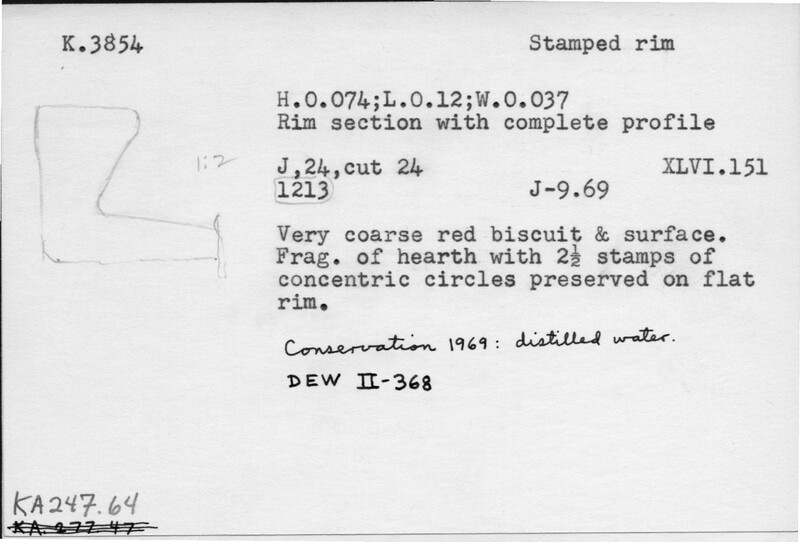 K.3854
Stamped rim
H.0.074;L.0.12;W.0.037
Rim section with complete profile
1:2
J,24,cut 24
XLVI.151
1213
J-9.69
Very coarse red biscuit & surface.
Frag. of hearth with 2½ stamps of
concentric circles preserved on flat
rim.
Conservation 1969: distilled water.
DEW II-368
KA247.64
KA.277.47